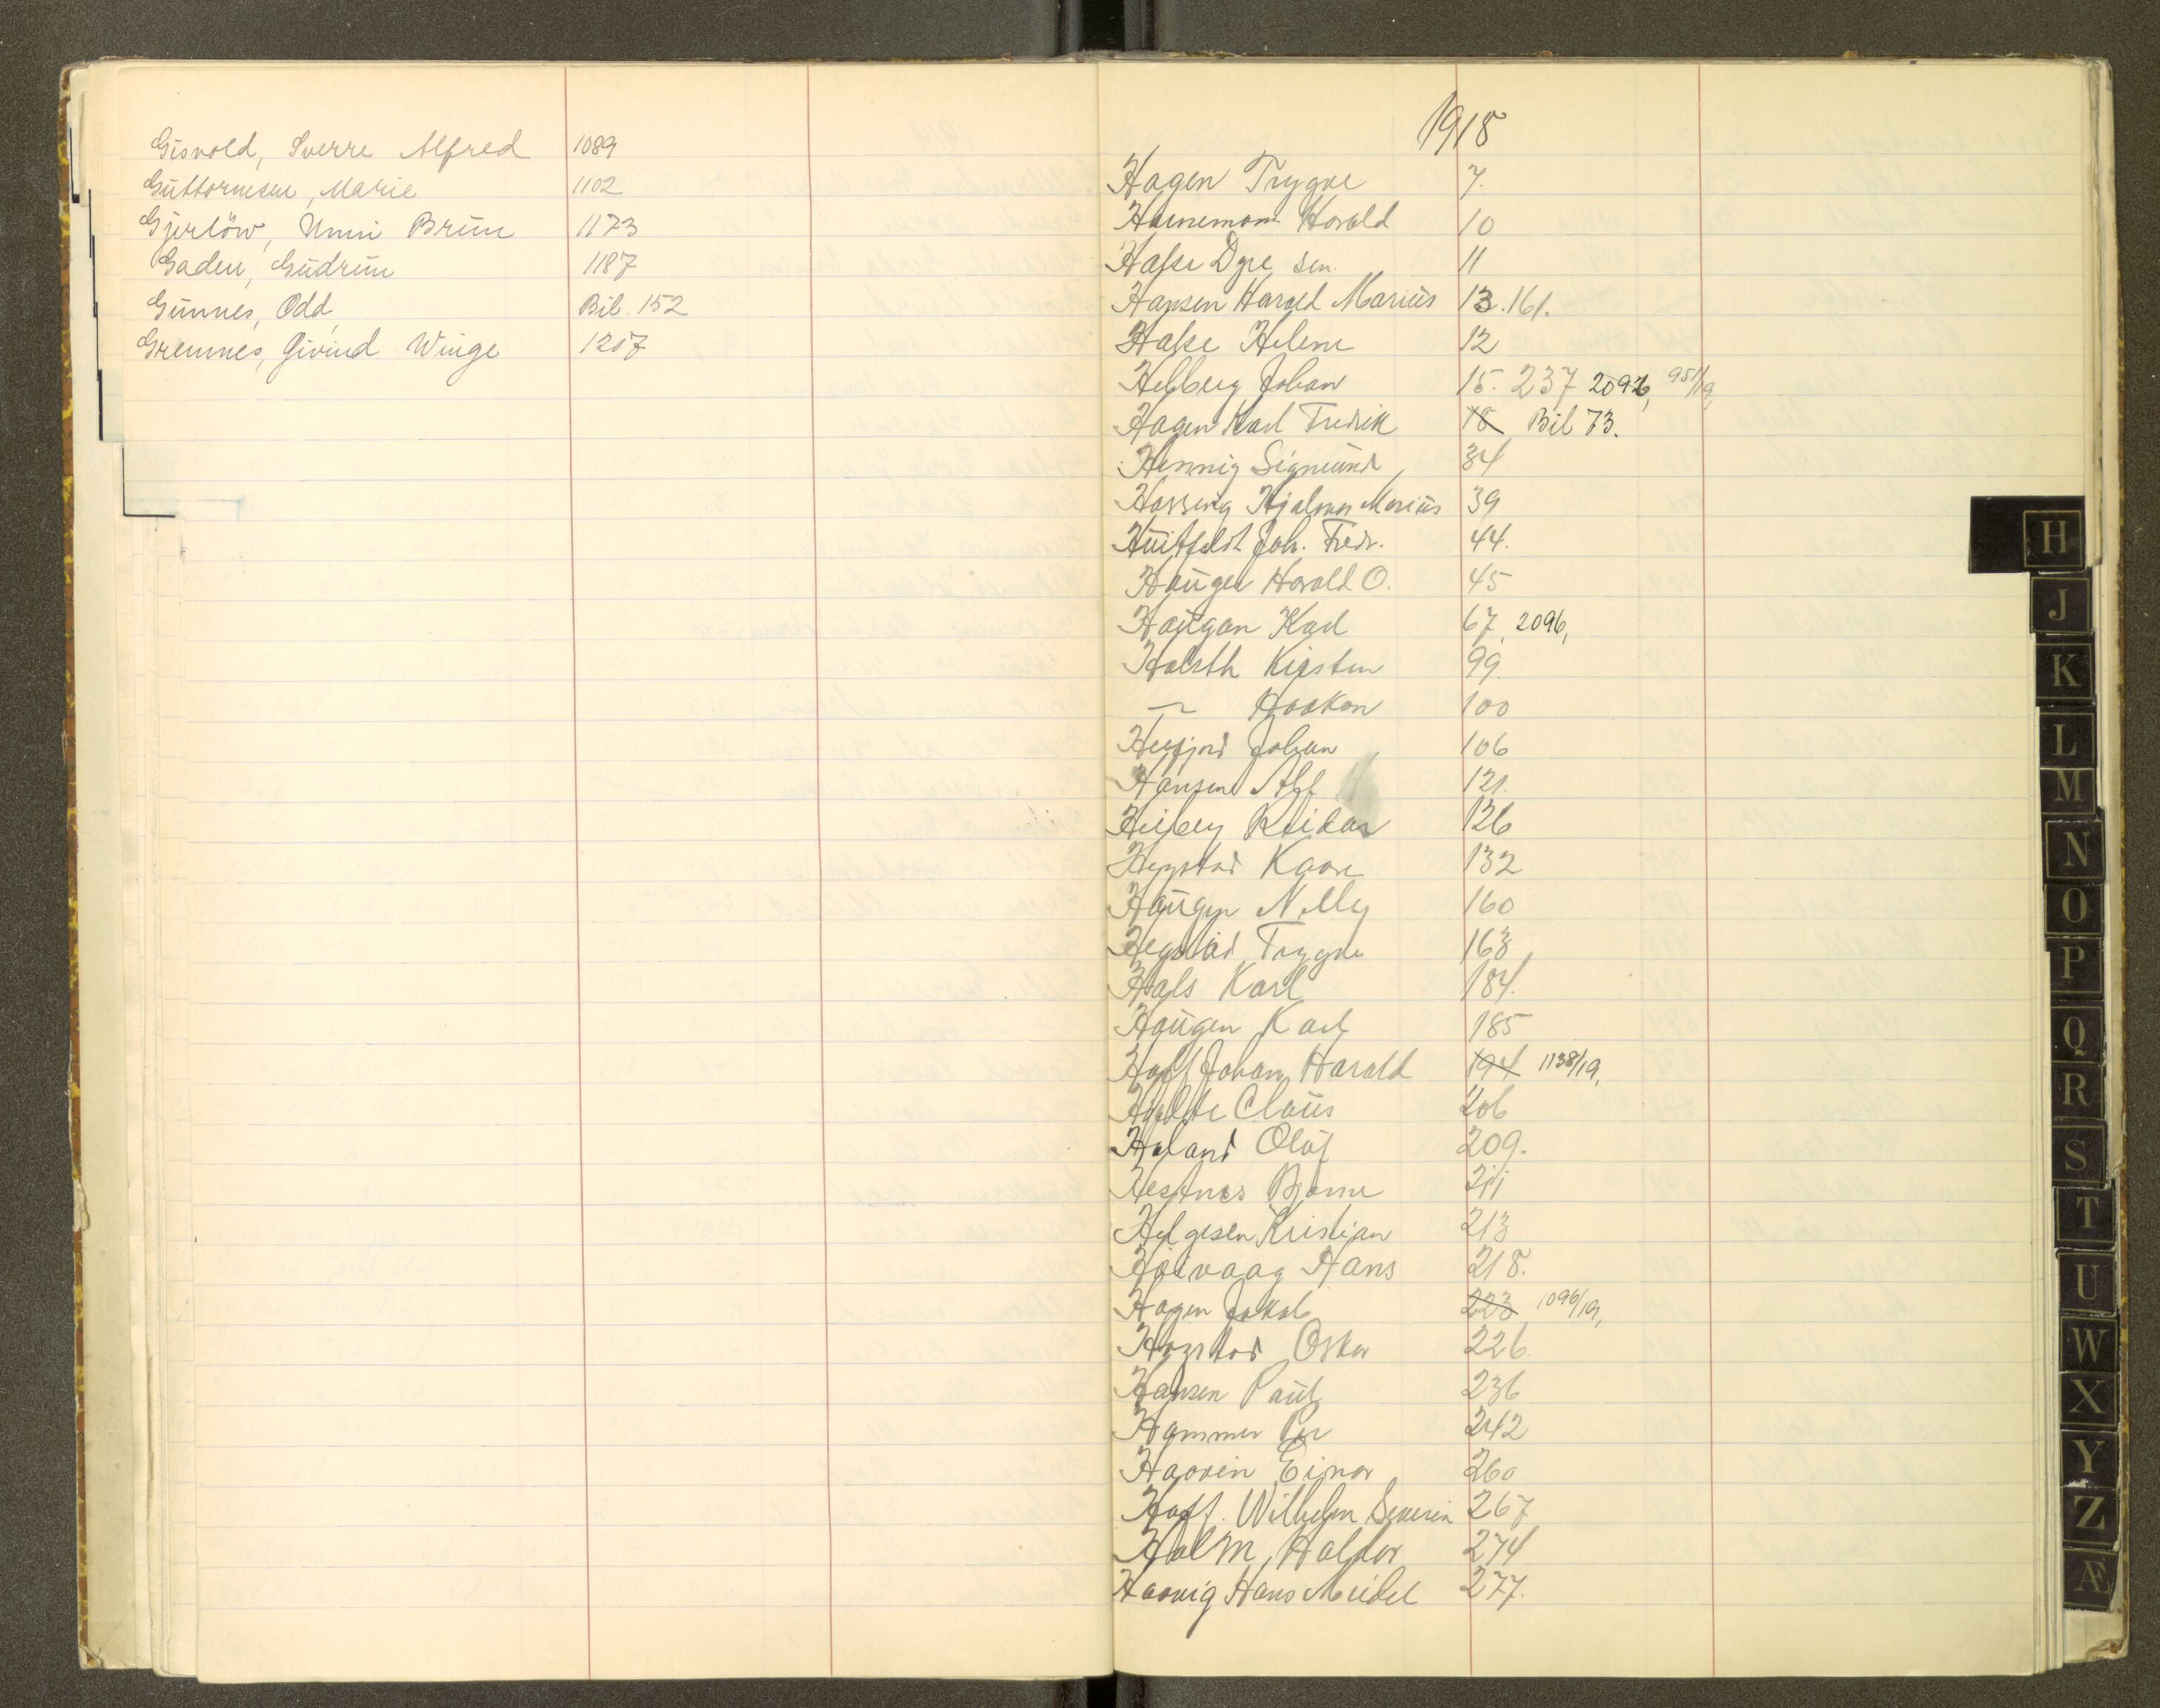 Gisvold, Sverre Alfred 1089
Guttormsen, Marie 1102
Gjerlöw, Unni Brun 1173
Gaden, Gudrun 1187
Gunnes, Odd, Bil. 152
Gremnes, Eivind Winge 1207
1918
Hagen Trygve 7.
Heinemann Harald 10
Halse Dyre sen. 11
Hansen Harald Marius 13. 161.
Halse Helene 12
Helberg Johan 15. 237 2092, 951/19,
Hagen Karl Fredrik 18 Bil 73.
Hennig Sigmund, 34
Hassing Hjalmar Marius 39
Huitfeldt Joh. Fredr. 44.
Haugen Harald O. 45
Haugan Karl 67, 2096,
Holsth Kirsten 99.
— Haakon 100
Johan 106
Hansen Alf 121.
Heiberg Reidar 126
Hegstad Kaare 132
Haugen Nelly 160
Hegstad Trygve 163
Hals Karl 184.
Haugen Karl 185
Hoff Johan Harald 194 1138/19,
Hjelte Claus 206
Høland Olaf 209.
Hestnes Bjarne 211
Helgesen Kristian 213
Høivaag Hans 218.
Hagen Jakob 223 1096/19,
Hogstad Oskar 226.
Hansen Paul 236
Hammer Per 242
Haavin Einar 260
Hoff. Wilhelm Severin 267
Holm, Halfdor 274
Haavig Hans Meidel 277.
H
J
K
L
M
N
O
P
Q
R
S
T
U
W
X
Y
Z
Æ